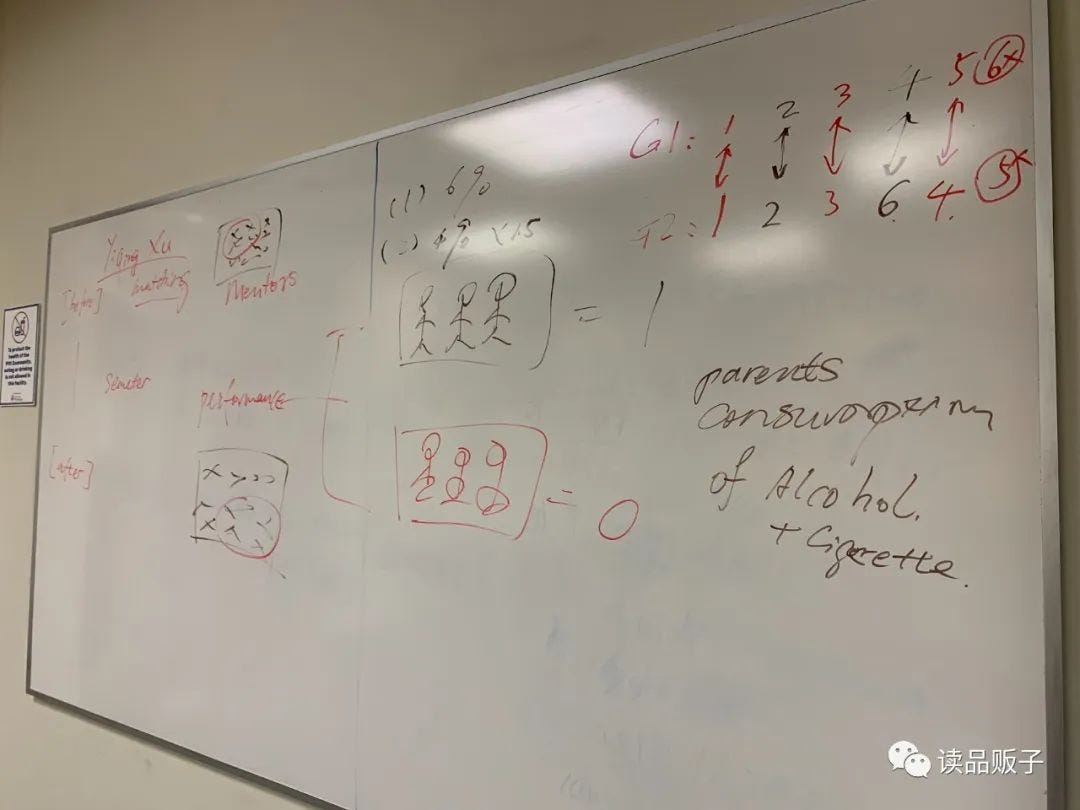 Yiqing Xu
[before] matching
Mentors
Semeter
performance
[after]
(1) 6%
(2) 4% x1.5
= 1
= 0
G1: 1 2 3 4 5 6x
1 2 3 6 4 5x
parents
consumption
of Alcohol.
+ Cigerette.
To protect the
health of the
eating or drinking
is not allowed in
this facility.
读品贩子